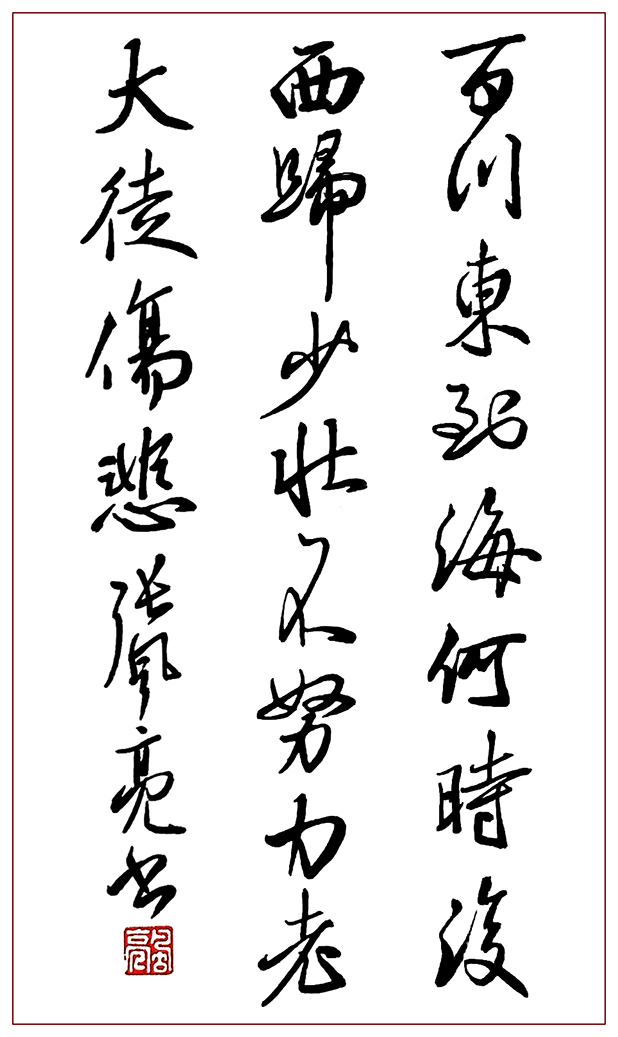 百川東到海何時復
西歸少壯不努力老
大徒傷悲張風亮书